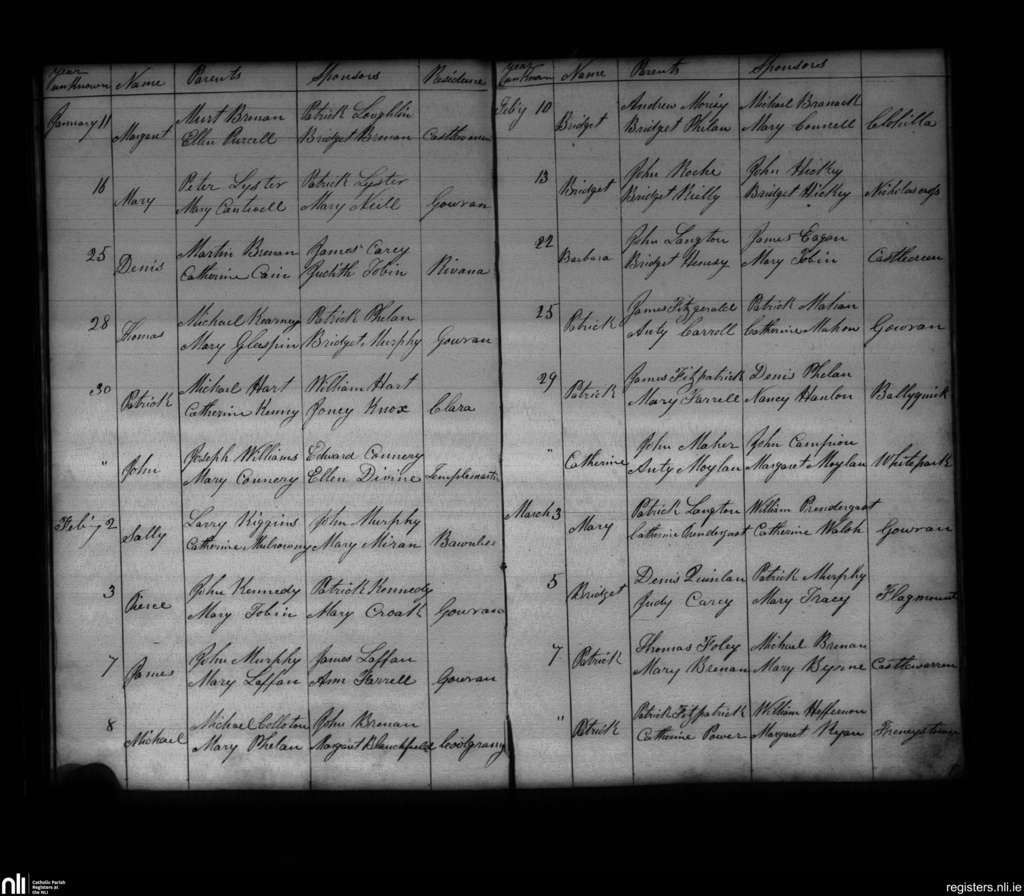 year unknown Name Parents Sponsors Residence
January 11 Margaret Murt Brenan Patrick Loughlin
Ellen Purcell Bridget Brenan
16 Mary Peter Lyster Patrick Lyster
Mary Cantwell Mary Neill Gowran
25 Denis Martin Brenan James Carey
Catherine Cain Judith Tobin Rivana
28 Thomas Michael Kearney Patrick Phelan
Mary Glaspin Bridget Murphy Gowran
30 Patrick Michael Hart William Hart
Catherine Kenny Joney Knox Clara
" John Joseph Williams Edward Connery
Mary Connery Ellen Divine Templemartin
Feb'y 2 Sally Larry Higgins John Murphy
Catherine Mulrowny Mary Miran
3 Pierce John Kennedy Patrick Kennedy
Mary Tobin Mary Croak Gowran
7 James John Murphy James Laffan
Mary Laffan Ann Farrell Gowran
8 Michael Michael Colloton John Brenan
Mary Phelan Margaret Blanchfield Coolgrany
year unknown Name Parents Sponsors
Feb'y 10 Bridget Andrew Michael Branack
Bridget Phelan Mary Connell Clohilla
13 Bridget John Roche John Hickey
Bridget Reilly Bridget Hickey
22 Barbara John Langton James Eagan
Bridget Henesy Mary Tobin
25 Patrick James Fitzgerald Patrick Mahan
Anty Carroll Catherine Mahon Gowran
29 Patrick James Fitzpatrick Denis Phelan
Mary Farrell Nancy Hanlon Ballyquirk
" Catherine John Maher John Campion
Anty Moylan Margaret Moylan Whitepark
March 3 Mary Patrick Langton William Prendergast
Catherine Prendergast Catherine Walsh Gowran
5 Bridget Denis Quinlan Patrick Murphy
Judy Carey Mary Tracey Flagmount
7 Patrick Thomas Foley Michael Brenan
Mary Brenan Mary Byrne Castlewarren
" Patrick Patrick Fitzpatrick William Heffernon
Catherine Power Margaret Ryan Freneystown
nli Catholic Parish
Registers at
the NLI
registers.nli.ie